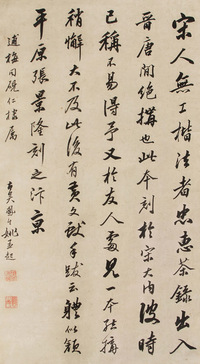 宋人無工楷法者忠惠茶錄出入
晉唐間絕搆也此本刻於宋大内彼時
已稱不易得予又於友人處見一本結搆
稍懈大不及此後有黃文獻手跋云軆似顏
平原張景隆刻之汴京
邁梅同硯仁棣屬
古吳鳳生姚孟起